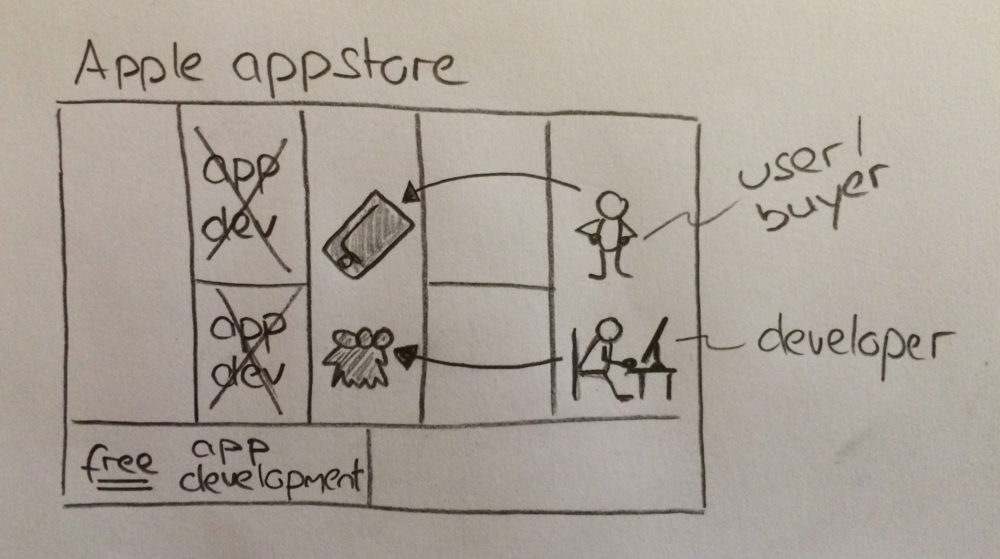 Apple appstore
app
dev
app
dev
user/
buyer
developer
free app
development